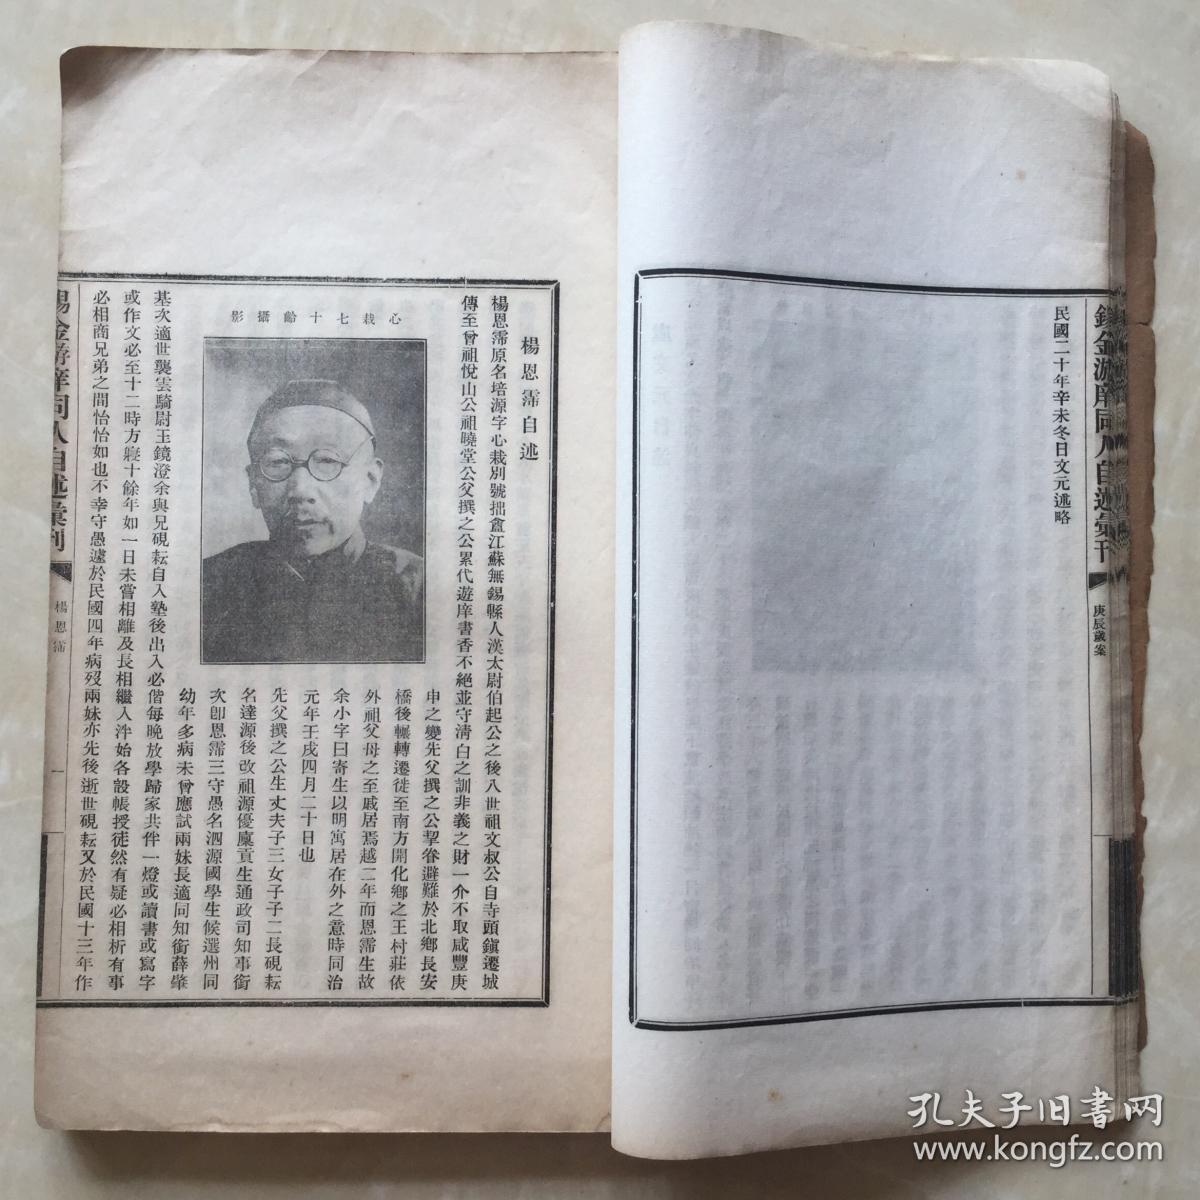 民國二十年辛未冬日文元述略
庚辰歲案
楊恩霈自述
楊恩霈原名培源字心栽別號拙盦江蘇無錫縣人漢太尉伯起公之後八世祖文叔公自寺頭鎮遷城
傳至曾祖悅山公祖曉堂公父撰之公累代遊庠書香不絕並守清白之訓非義之財一介不取咸豐庚
申之變先父撰之公挈眷避難於北鄉長安
橋後輾轉遷徙至南方開化鄉之王村莊依
外祖父母之至戚居焉越二年而恩霈生故
余小字曰寄生以明寓居在外之意時同治
元年壬戌四月二十日也
先父撰之公生丈夫子三女子子二長硯耘
名達源後改祖源優廩貢生通政司知事銜
次卽恩霈三守愚名泗源國學生候選州同
幼年多病未曾應試兩妹長適同知銜薛肇
心栽七十齡攝影
基次適世襲雲騎尉王鏡澄余與兄硯耘自入塾後出入必偕每晚放學歸家共伴一燈或讀書或寫字
或作文必至十二時方寢十餘年如一日未嘗相離及長相繼入泮始各設帳授徒然有疑必相析有事
必相商兄弟之間怡怡如也不幸守愚遽於民國四年病歿兩妹亦先後逝世硯耘又於民國十三年作
錫金游庠同人自述彙刊
楊恩霈
一
孔夫子旧書网
www.kongfz.com